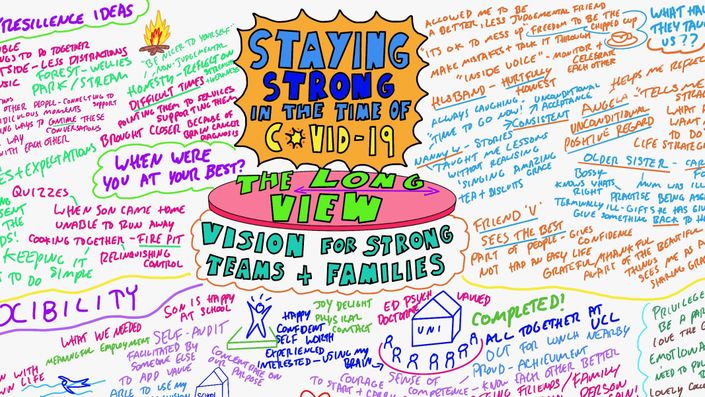 RESILIENCE IDEAS
THINGS TO DO TOGETHER
OUTSIDE - LESS DISTRACTIONS
FOREST - WELLIES
PARK/STREAM
"BE NICER TO YOURSELF"
NON-JUDGEMENTAL
HONESTY - REFLECT ON
DIFFICULT TIMES
POINTING THEM TO SERVICES
SUPPORTING THEM
BROUGHT CLOSER BECAUSE OF
BRAIN CANCER
DIAGNOSIS
OTHER PEOPLE - CONNECTING TO
SUPPORT
RIDICULOUS MOMENTS
WAYS TO CONTINUE THESE
CONVERSATIONS
WITH EACH OTHER
+ EXPECTATIONS
WHEN WERE
YOU AT YOUR BEST?
QUIZZES
WHEN SON CAME HOME
UNABLE TO RUN AWAY
COOKING TOGETHER - FIRE PIT
RELINQUISHING
CONTROL
KEEPING IT
TO DO SIMPLE
STAYING
STRONG
IN THE TIME OF
COVID-19
THE LONG
VIEW
VISION FOR STRONG
TEAMS + FAMILIES
ALLOWED ME TO BE
A BETTER, LESS JUDGEMENTAL FRIEND
"IT'S OK TO MESS UP" FREEDOM TO BE THE
CHIPPED CUP
MAKE MISTAKES + TALK IT THROUGH
"INSIDE VOICE" - MONITOR +
CELEBRATE
EACH OTHER
HUSBAND - HURTFULLY
HONEST
ALWAYS LAUGHING, UNCONDITIONAL
"TIME TO GO NOW!" ACCEPTANCE
CONSISTENT
NANNY W - STORIES
TAUGHT ME LESSONS
WITHOUT REALISING
SINGING AMAZING
GRACE
TEA + BISCUITS
WHAT HA
THEY TAU
US??
HELPS ME REFLEC
ANGELA - "TELLS ME
UNCONDITIONAL
POSITIVE REGARD
STRA
WHAT
WANT
TO DO
LIFE STRATEG
OLDER SISTER - CAR
BOSSY
KNOWS WHATS
RIGHT
MUM WAS ILL
PRACTISE BEING ASSE
TERMINALLY ILL - GIFTS HE HAS GIV
GIVE SOMETHING BACK TO H
FRIEND 'V'
SEES THE BEST
PART OF PEOPLE - GIVES
CONFIDENCE
NOT HAD AN EASY LIFE
GRATEFUL/THANKFUL
A PART OF THE BEAUTIFUL
THINGS
SEES ME AS
SHARING GRA
OCIBILITY
SON IS HAPPY
AT SCHOOL
WHAT WE NEEDED
MEANINGFUL EMPLOYMENT
SELF-AUDIT
FACILITATED BY
SOMEONE ELSE
TO ADD VALUE
ABLE TO USE MY
SCHOOL
CONCENTRATE ON
OUR PURPOSE
HAPPY
CONFIDENT
SELF WORTH
EXPERIENCED
INTERESTED - USING MY
BRAIN
JOY DELIGHT
PHYSICAL
CONTACT
ED PSYCH
DOCTORATE
VALUED
UNI
COURAGE
TO START + CARRY
SENSE OF
COMPETENCE
COMPLETED!
ALL TOGETHER AT
UCL
OUT FOR LUNCH NEARBY
PROUD - ACHIEVMENT
KNOW EACH OTHER BETTER
FRIENDS/FAMILY
PERSON
PRIVILEGE
BE A PAR
LOVE THE C
EMOTIONAL
NEED TO
LOVELY COLLEA